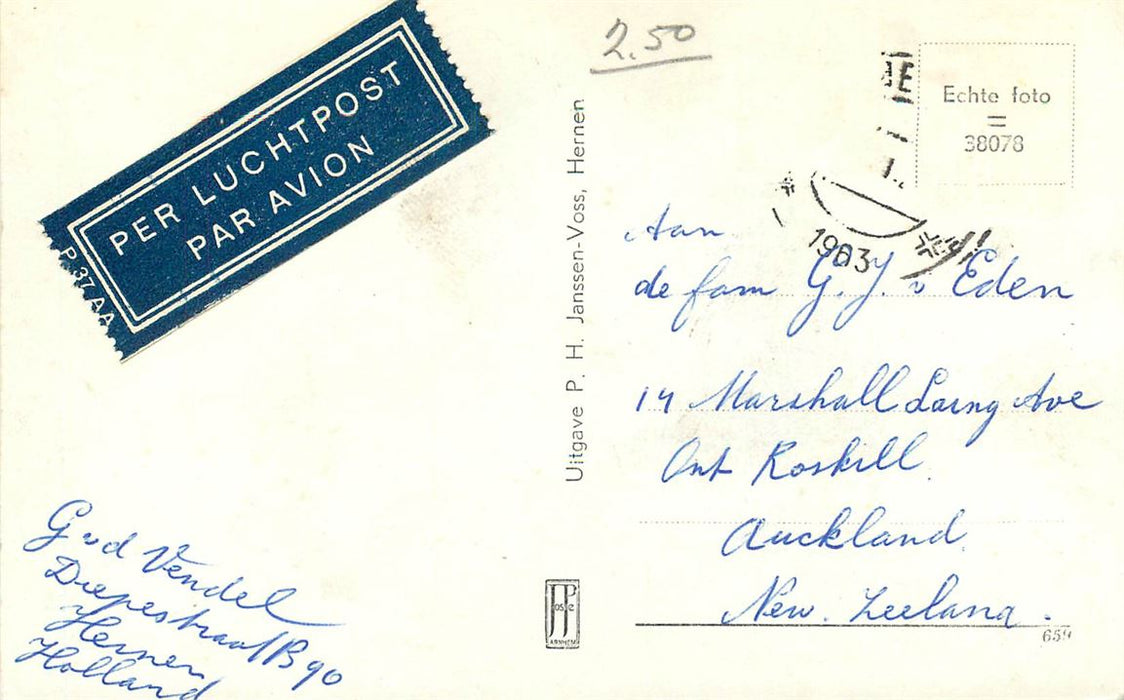 PER LUCHTPOST
PAR AVION
P. 37 A A
G v d Vendel
Diepestraat B 90
Hernen
Holland
Uitgave P. H. Janssen-Voss, Hernen
2.50
Echte foto
=
38078
Aan
de fam G. J. v Eden
14 Marshall Laing Ave
Ont Roskill
Auckland
New. Zeeland.
ARNHEM